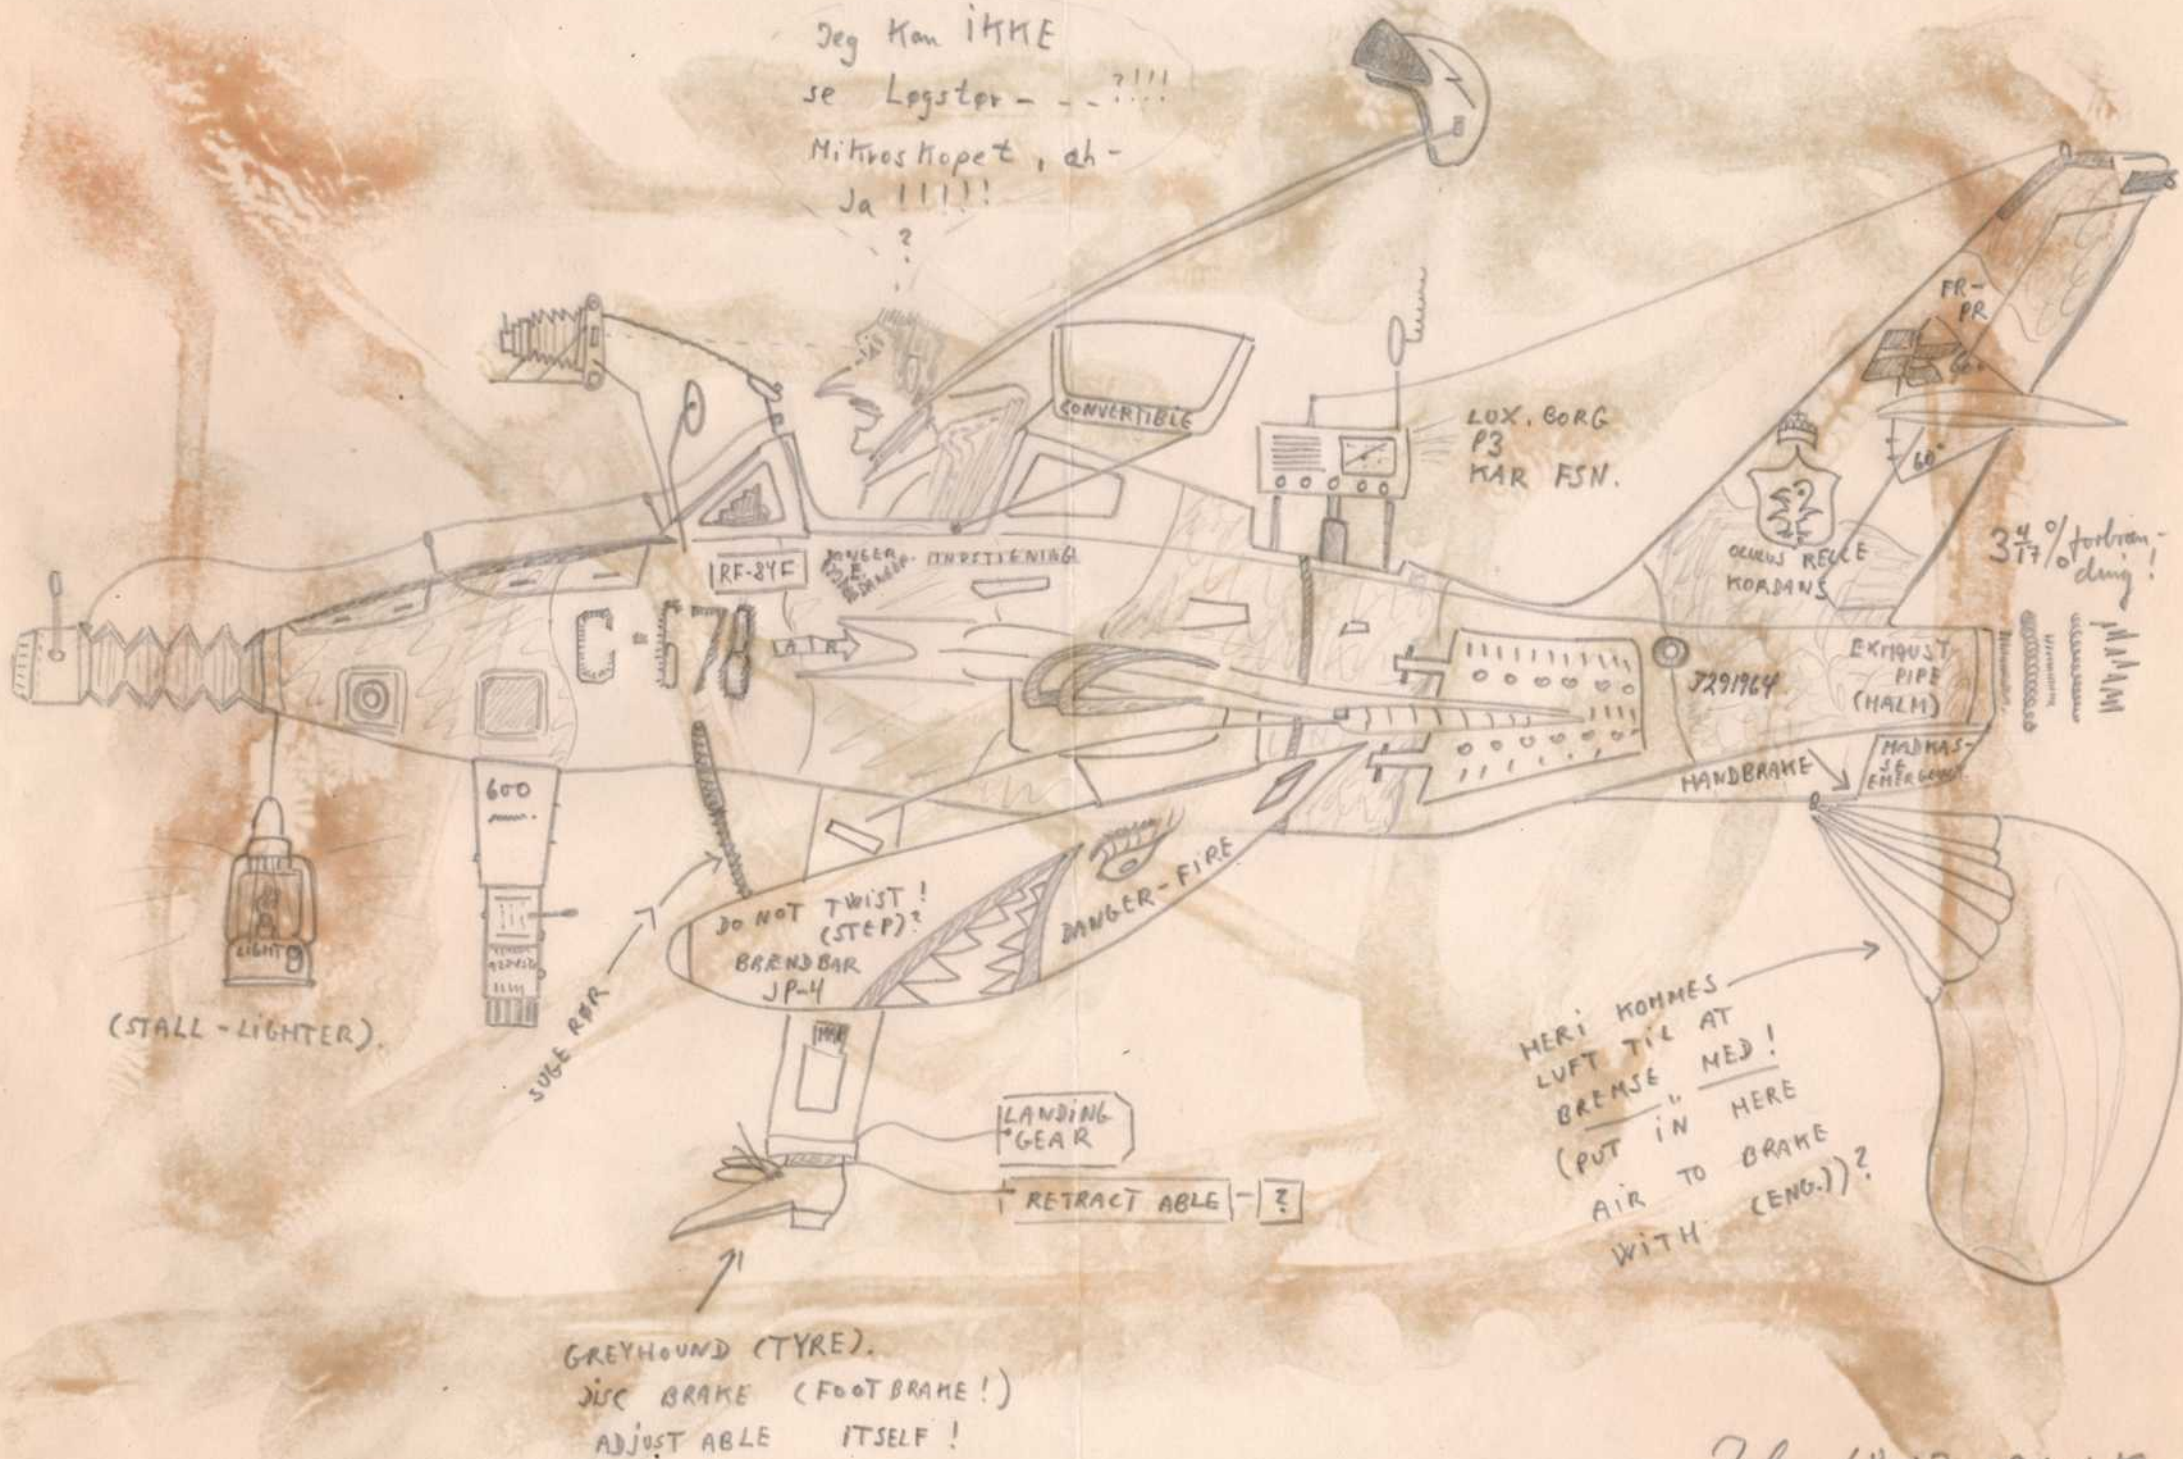 Jeg Kan iKKE
se Løgstør - - - ?!!!
Mikroskopet, ah-
Ja !!!!!
?
CONVERTIBLE
LUX. BORG
P3
KAR FSN.
FR-
PR
60°
OCULUS RELLE
KORDANS
3 4/17 % forbræn-
ding!
RF-84F
DANGER
DANGER
INDSTIGNING
C-678
AIR
J291964
EXHAUST
PIPE
(HALM)
MADKAS-
SE
HANDBRAKE
600
LIGHT
(STALL-LIGHTER).
SUGE RØR
DO NOT TWIST!
(STEP)?
BRENDBAR
JP-4
DANGER-FIRE
LANDING
GEAR
RETRACT ABLE - ?
HERi KOMMES
LUFT TiL AT
BREMSE MED!
(PUT iN HERE
AiR TO BRAKE
WiTH (ENG.))?
GREYHOUND (TYRE).
DiSC BRAKE (FOOTBRAKE!)
ADJUST ABLE iTSELF!